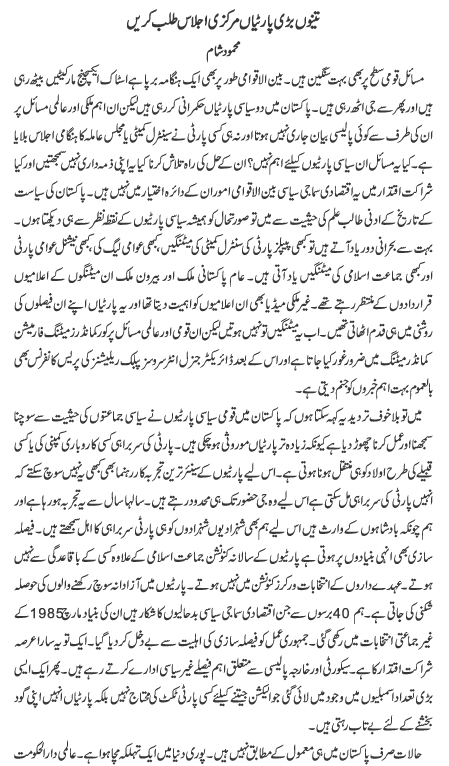 تینوں بڑی پارٹیاں مرکزی اجلاس طلب کریں
محمود شام
مسائل قومی سطح پر بھی بہت سنگین ہیں۔ بین الاقوامی طور پر بھی ایک ہنگامہ برپا ہے اسٹاک ایکسچینج مارکیٹیں بیٹھ رہی
ہیں اور پھر سے جی اٹھ رہی ہیں۔ پاکستان میں دو سیاسی پارٹیاں حکمرانی کر رہی ہیں لیکن ان اہم ملکی اور عالمی مسائل پر
ان کی طرف سے کوئی پالیسی بیان جاری نہیں ہوتا اور نہ ہی کسی پارٹی نے سینٹرل کمیٹی یا مجلس عاملہ کا ہنگامی اجلاس بلایا
ہے۔ کیا یہ مسائل ان سیاسی پارٹیوں کیلئے اہم نہیں؟ ان کے حل کی راہ تلاش کرنا کیا یہ اپنی ذمہ داری نہیں سمجھتیں اور کیا
شراکت اقتدار میں یہ اقتصادی سماجی سیاسی بین الاقوامی امور ان کے دائرہ اختیار میں نہیں ہیں۔ پاکستان کی سیاست
کے تاریخ کے ادنیٰ طالب علم کی حیثیت سے میں تو صورتحال کو ہمیشہ سیاسی پارٹیوں کے نقطۂ نظر سے ہی دیکھتا ہوں۔
بہت سے بحرانی دور یاد آتے ہیں تو کبھی پیپلز پارٹی کی سنٹرل کمیٹی کی میٹنگیں، کبھی عوامی لیگ کی، کبھی نیشنل عوامی پارٹی
اور کبھی جماعت اسلامی کی میٹنگیں یاد آتی ہیں۔ عام پاکستانی ملک اور بیرون ملک ان میٹنگوں کے اعلامیوں
قراردادوں کے منتظر رہتے تھے۔ غیر ملکی میڈیا بھی ان اعلامیوں کو اہمیت دیتا تھا اور یہ پارٹیاں اپنے ان فیصلوں کی
روشنی میں ہی قدم اٹھاتی تھیں۔ اب یہ میٹنگیں تو نہیں ہوتیں لیکن ان قومی اور عالمی مسائل پر کور کمانڈرز میٹنگ فارمیشن
کمانڈر میٹنگ میں ضرور غور کیا جاتا ہے اور اس کے بعد ڈائریکٹر جنرل انٹر سروسز پبلک ریلیشنز کی پریس کانفرنس بھی
بالعموم بہت اہم خبروں کو جنم دیتی ہے۔
میں تو بلا خوف تردید یہ کہہ سکتا ہوں کہ پاکستان میں قومی سیاسی پارٹیوں نے سیاسی جماعتوں کی حیثیت سے سوچنا
سمجھنا اور عمل کرنا چھوڑ دیا ہے کیونکہ زیادہ تر پارٹیاں موروثی ہو چکی ہیں۔ پارٹی کی سربراہی کسی کاروباری کمپنی کی یا کسی
قبیلے کی طرح اولاد کو ہی منتقل ہونا ہوتی ہے۔ اس لیے پارٹیوں کے سینئر ترین تجربہ کار رہنما بھی کبھی یہ نہیں سوچ سکتے کہ
انہیں پارٹی کی سربراہی مل سکتی ہے اس لیے وہ جی حضور تک ہی محدود رہتے ہیں۔ سالہا سال سے یہ تجربہ ہو رہا ہے اور
ہم چونکہ بادشاہوں کے وارث ہیں اس لیے ہم بھی شہزادیوں شہزادوں کو ہی پارٹی سربراہی کا اہل سمجھتے ہیں۔ فیصلہ
سازی بھی انہی بنیادوں پر ہوتی ہے پارٹیوں کے سالانہ کنونشن جماعت اسلامی کے علاوہ کسی کے باقاعدگی سے نہیں
ہوتے۔ عہدے داروں کے انتخابات ورکرز کنونشن میں نہیں ہوتے۔ پارٹیوں میں آزادانہ سوچ رکھنے والوں کی حوصلہ
شکنی کی جاتی ہے۔ ہم 40 برسوں سے جن اقتصادی سماجی سیاسی بدحالیوں کا شکار ہیں ان کی بنیاد مارچ 1985 کے
غیر جماعتی انتخابات میں رکھی گئی۔ جمہوری عمل کو فیصلہ سازی کی اہلیت سے بے دخل کر دیا گیا۔ ایک تو یہ سارا عرصہ
شراکت اقتدار کا ہے۔ سیکورٹی اور خارجہ پالیسی سے متعلق اہم فیصلے غیر سیاسی ادارے کرتے رہے ہیں۔ پھر ایک ایسی
بڑی تعداد اسمبلیوں میں وجود میں لائی گئی جو الیکشن جیتنے کیلئے کسی پارٹی ٹکٹ کی محتاج نہیں بلکہ پارٹیاں انہیں اپنی گود
بخشنے کے لئے بے تاب رہتی ہیں۔
حالات صرف پاکستان میں ہی معمول کے مطابق نہیں ہیں۔ پوری دنیا میں ایک تہلکہ مچا ہوا ہے۔ عالمی دارالحکومت